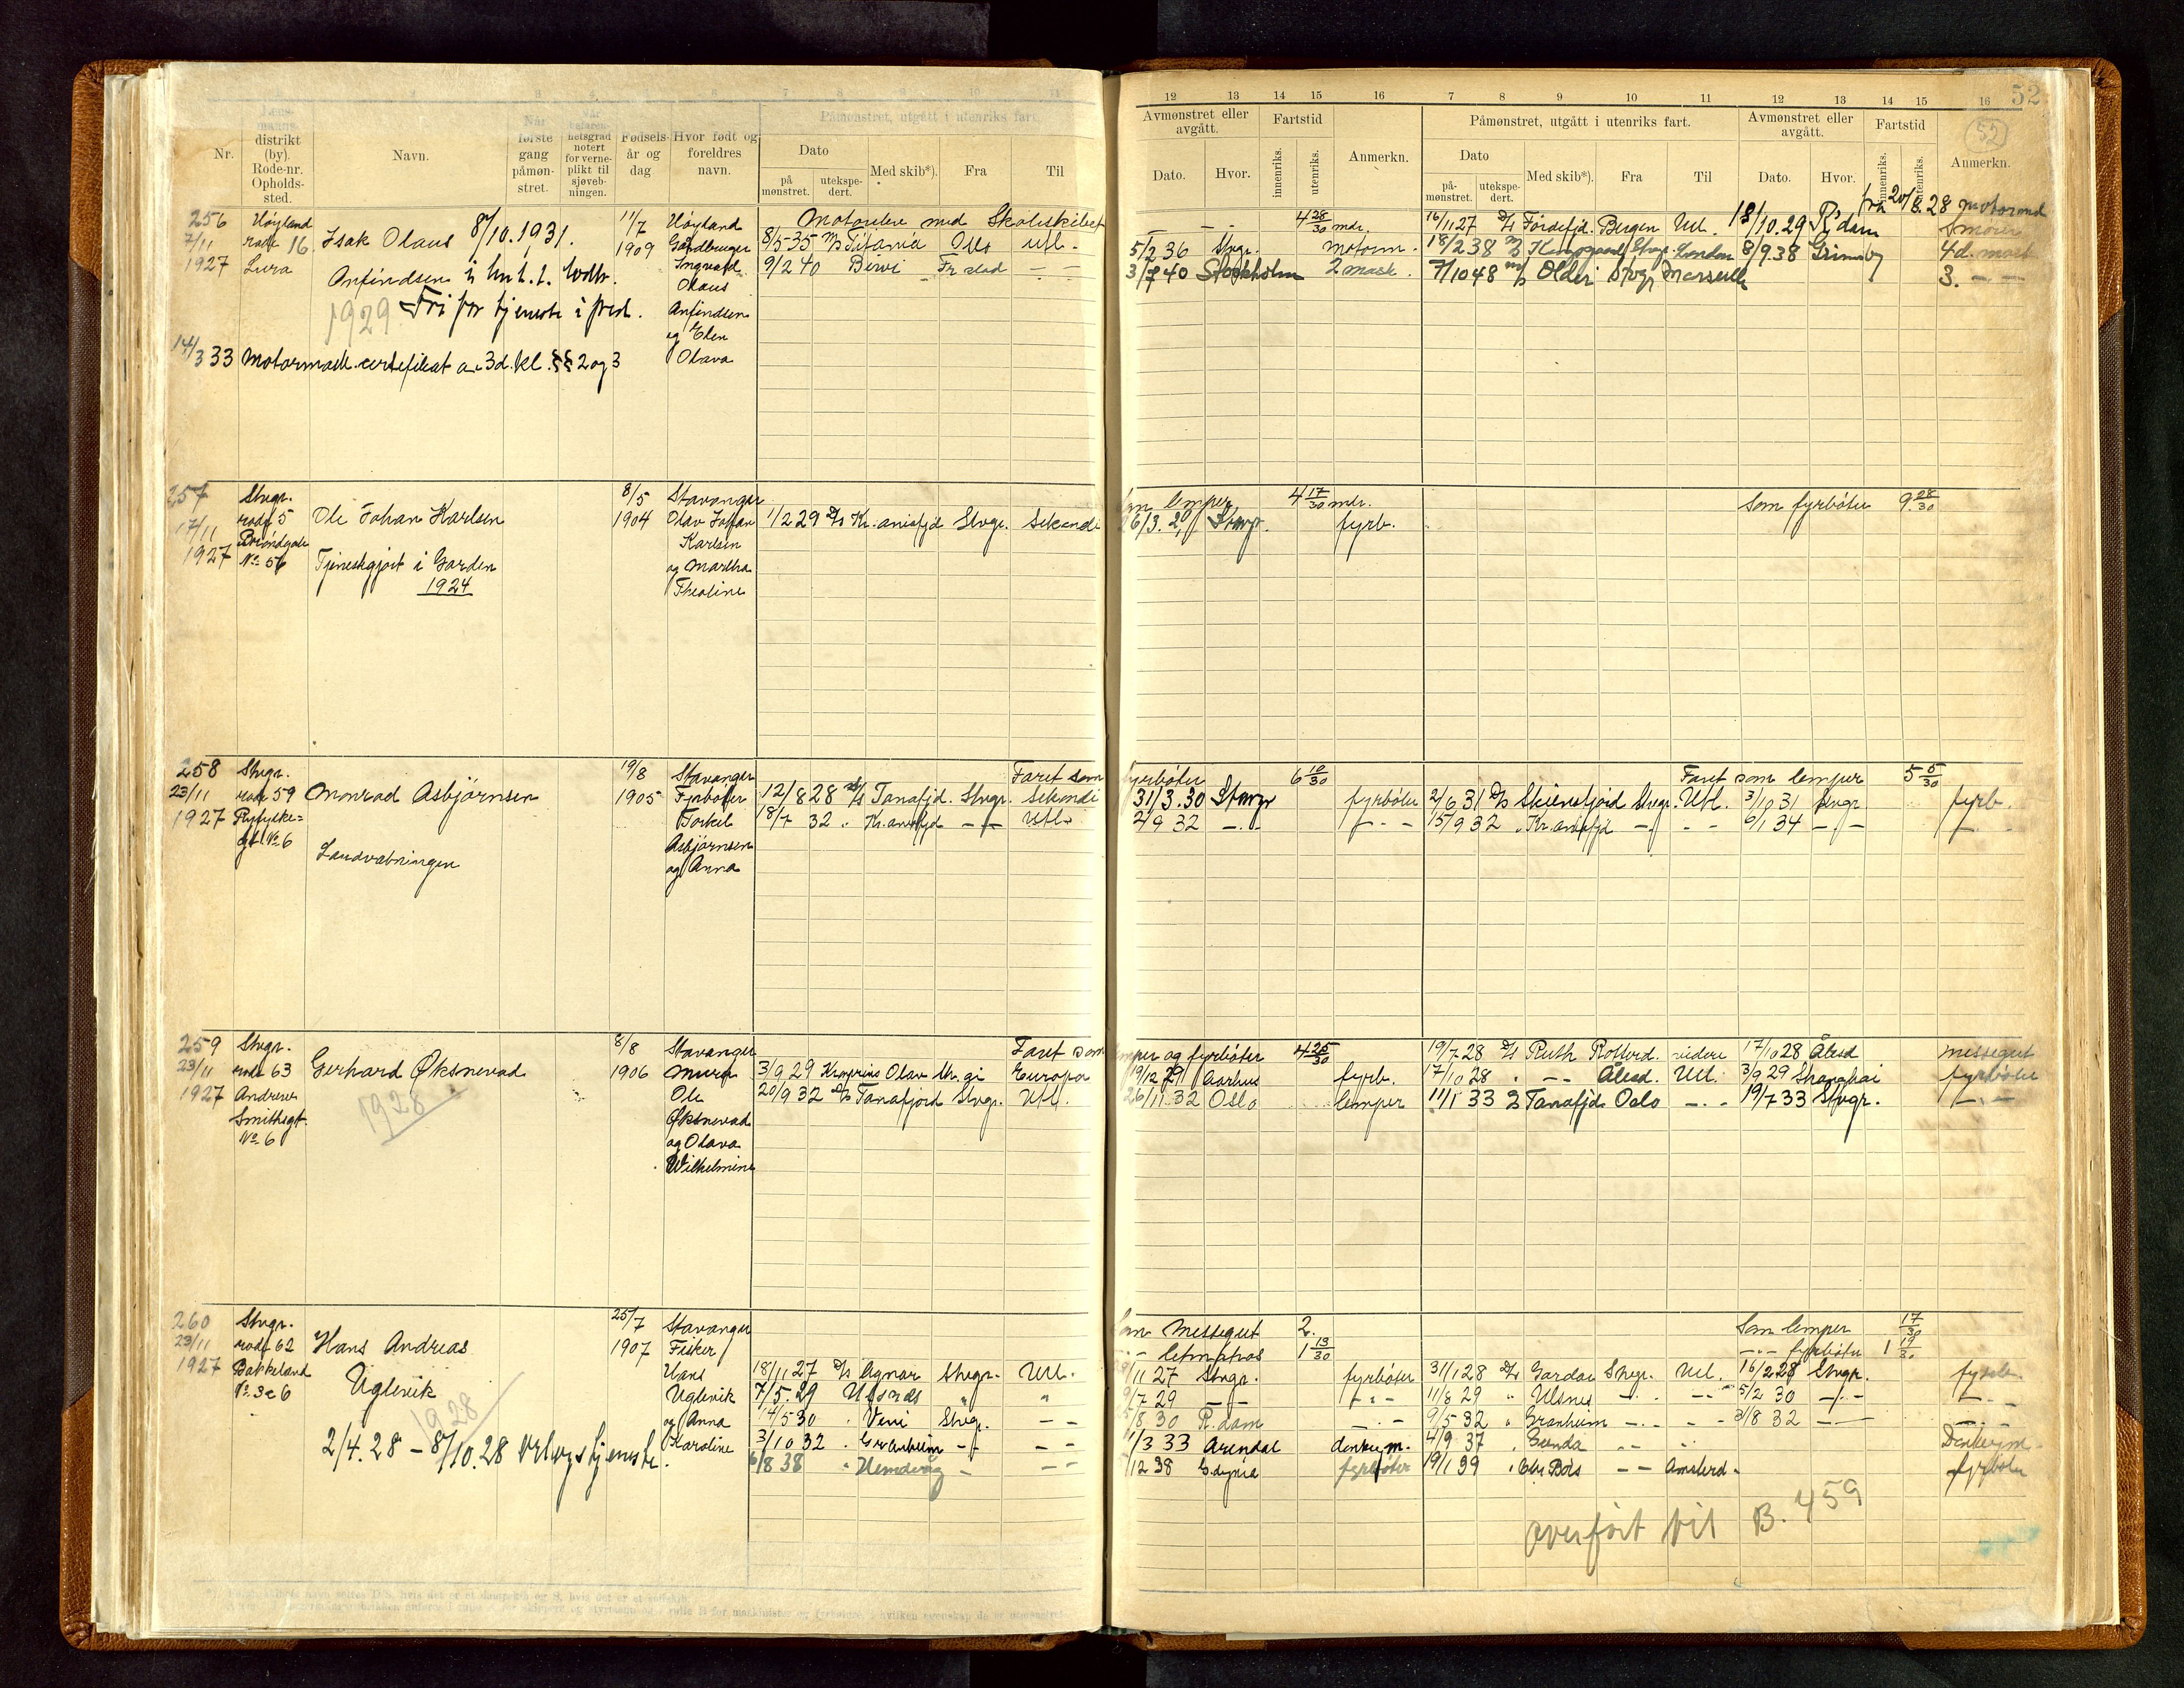 52
52
1 2 3 4 5 6 7 8 9 10 11
Nr.
Lensmanns-
distrikt
(by).
Rode-nr.
Opholds-
sted.
Navn.
Når
første
gang
påmøn-
stret.
Når
befaren-
hetsgrad
notert
for verne-
plikt til
sjøveb-
ningen.
Fødsels-
år og
dag
Hvor født og
foreldres
navn.
Påmønstret, utgått i utenriks fart.
Dato
på
mønstret.
utekspe-
dert.
Med skib*).
Fra
Til
12 13 14 15 16 7 8 9 10 11 12 13 14 15 16
Avmønstret eller
avgått.
Dato. Hvor.
Fartstid
innenriks.
utenriks.
Anmerkn.
Påmønstret, utgått i utenriks fart.
Dato
på-
mønstret.
utekspe-
dert.
Med skib*).
Fra
Til
Avmønstret eller
avgått.
Dato. Hvor.
Fartstid
innenriks.
utenriks.
Anmerkn.
256
7/11
1927
Høyland
rode 16
Lura
Isak Olaus 8/10.1931.
Anfindsen
1929 Fri for tjeneste i fred.
14/3 33 Motormask. certifikat av 3d. kl. §§ 2 og 3
11/7
1909
Høyland
Gårdbruger
Ingvald
Olaus
Anfindsen
og Elen
Olava
Motorelev med Skoleskibet
8/5-35 M/S Titania Oslo Utl.
9/2 40 Birvi Fr.stad — —
4 28/30 mdr.
5/2 36 Stvgr. Motorm.
3/7 40 Stockholm 2 mask.
fra 20/8.28 motormd
16/11 27 D/S Fordefjd. Bergen Utl. 18/10.29 R'dam Smører
18/2 38 M/S Stvgr. London 8/9.38 Grimsby 4d. mask
7/10 48 M/S Older Stvgr Marseille 3. — —
257
17/11
1927
Stvgr.
rode 5
No 56
Ole Johan Karlsen
Tjenestgjort i Garden
1924
8/5
1904
Stavanger
Olav Johan
Karlsen
og Martha
Theoline
1/2 29 D/S Kr.aniafjd Stvgr. Sekondi
Som lemper 4 17/30 mdr.
6/3. 29 Stavgr. fyrb.
Som fyrbøter 9 28/30
258
23/11
1927
Stvgr.
rode 59
Ryfylke-
gt. No 6
Monrad Asbjørnsen
Landvæbningen
19/8
1905
Stavanger
Fyrbøter
Torkel
Asbjørnsen
og Anna
Faret som
12/8 28 D/S Tanafjd. Stvgr. Sekondi
18/7 32 " Kr.aniafjd — — Utl.
fyrbøter 6 10/30
31/3.30 Stavgr fyrbøter
2/9 32 — — — —
Faret som lemper 5 5/30
2/6 31 D/S Skiensfjord Stvgr. Utl. 3/10 31 Stvgr fyrb.
15/9 32 " Kr.aniafjd — — — 6/1 34 — — —
259
23/11
1927
Stvgr.
rode 63
Andreas
Smithsgt.
No 6
Gerhard Øksnevad
1928
8/8
1906
Stavanger
Murer
Ole
Øksnevad
og Olava
Wilhelmine
Faret som
3/9 29 Kronprins Olav Stvgr Europa
20/9 32 D/S Tanafjord Stvgr. Utl.
lemper og fyrbøter 4 25/30
19/12 29 Aarhus fyrb.
26/11 32 Oslo lemper
19/7 28 D/S Ruth Rotterd. videre 17/10 28 Ålesd messegut
17/10 28 " — — Ålesd. Utl. 3/9 29 Shanghai fyrbøter
11/1 33 D/S Tanafjd. Oslo — — 19/7 33 Stvgr. — —
260
23/11
1927
Stvgr.
rode 62
Bakkeland
No 3c 6
Hans Andreas
Uglevik
1928
2/4.28 – 8/10.28 Utl. tjeneste.
25/7
1907
Stavanger
Fisker
Hans
Uglevik
og Anna
Karoline
18/11 27 D/S Agnar Stvgr. Utl.
7/5.29 Ulsnes " "
14/5 30 " Veni Stvgr. — —
3/10 32 " Granheim — — — —
6/8 38 " Hemdvåg — — —
Som Messegut 2.
— " — letmatros 1 13/30
11 27 Stvgr. fyrbøter
9/7 29 — — — —
8 30 R.dam — —
1/3 33 Arendal donkeym.
/12 38 Gdynia fyrbøter
Som lemper 17/30
— " — fyrbøter 1 19/30
31/1 28 D/S Gardar Stvgr. Utl. 16/2 28 Stvgr. fyrb.
11/8 29 " Ulsnes — — — — 5/2 30 — — — —
9/5 32 " Granheim — — — — 3/8 32 — — — —
4/9 37 " Gunda — — — — Donkeym.
19/1 39 " Bois — — Amsterd. fyrbøter
overført til B. 459